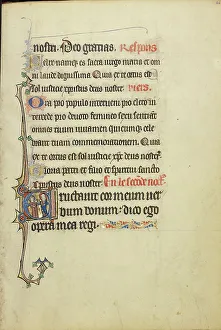 nostri. Deo gratias. Respons
Felix namqz es sacra virgo maria et om
ni laude dignissima Quia ex te ortus est
sol iusticie xpistus deus noster vers.
Ora pro populo interveni pro clero in
tercede pro devoto femineo sexu senciant
omnes tuum iuvamen quicumque cele
brant tuam commemorationem. Quia ex
te ortus est sol iusticie xps deus noster.
Gloria patri et filio et spiritui sancto
xpistus deus noster. In ie secde noct.
Eructavit cor meum ver
bum bonum: dico ego
opera mea regi.